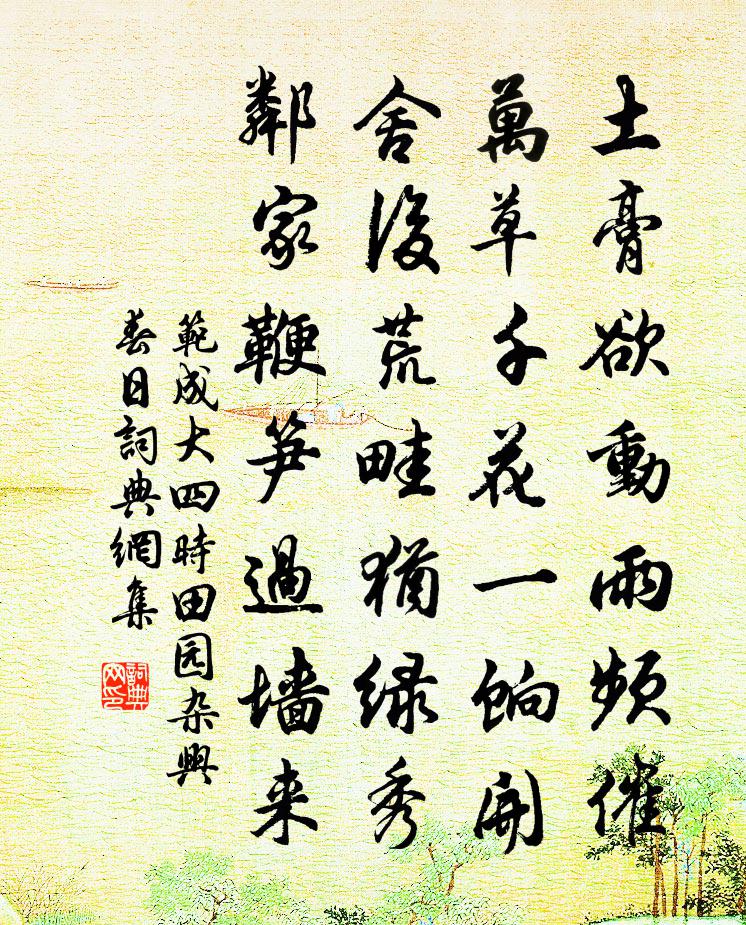 土膏欲動雨頻催
萬草千花一餉開
舍後荒畦猶綠秀
鄰家鞭笋過墙来
範成大四時田园杂興
春日詞典網集
詞典网印